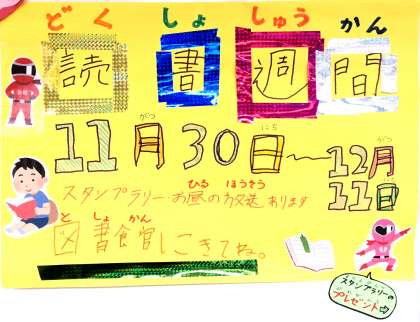 どくしょしゅうかん
読書週間
がつ にち
11月30日～
がつ
12月
11日
スタンプラリー お昼の放送あります
ひる ほうそう
と しょ かん
図書館にきてね。
スタンプラリーの
プレゼント